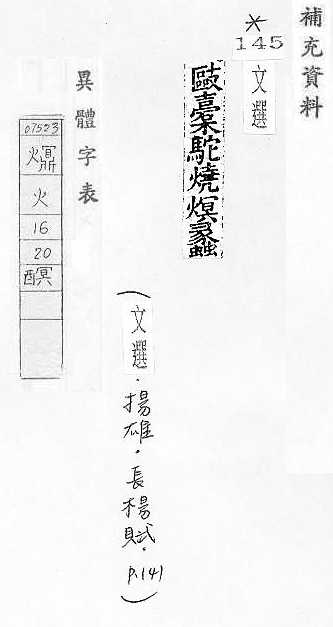 補充資料
*
145
文選
毆橐駝燒熐蠡
(文選·揚雄·長楊賦·p.141)
異體字表
07553
火
16
20